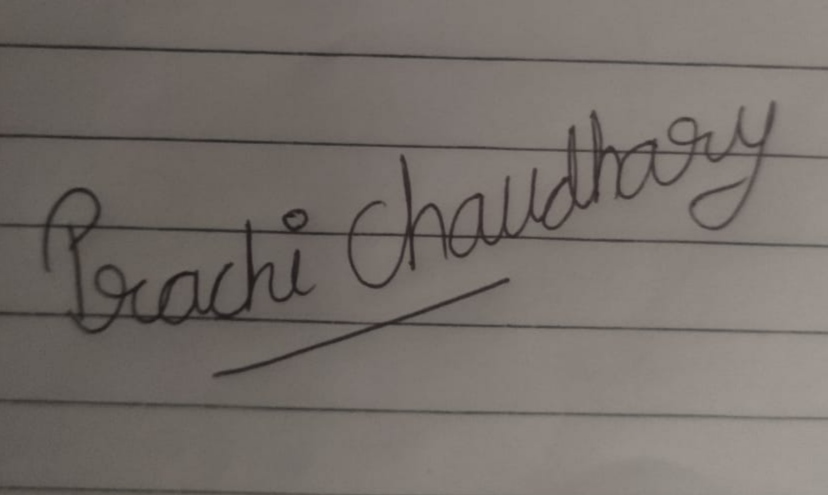 Prachi Chaudhary